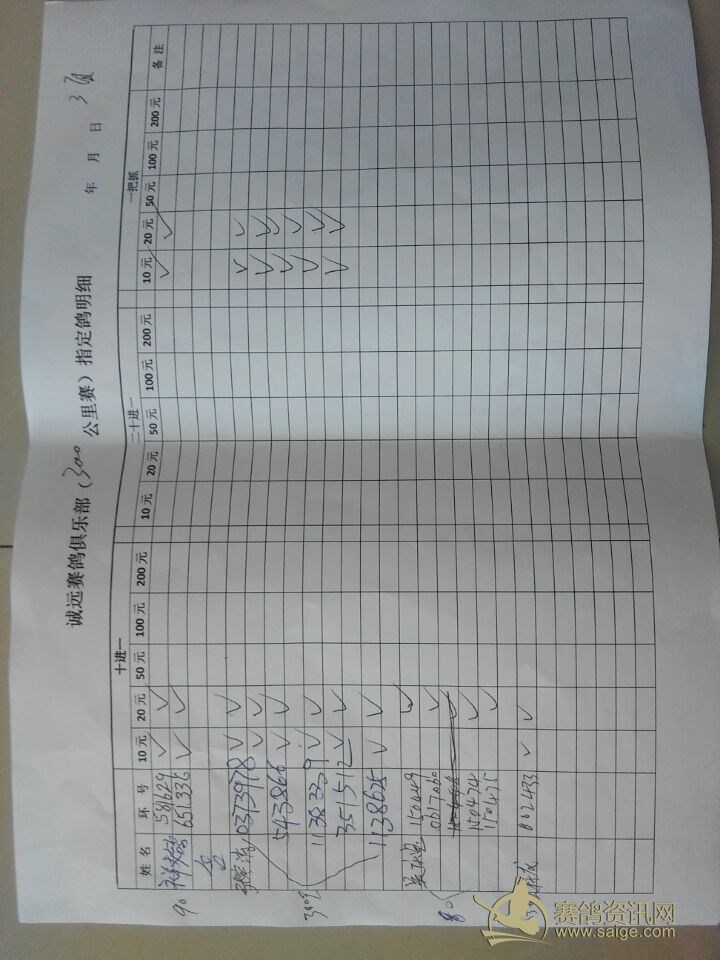 诚远赛鸽俱乐部(300公里赛)指定鸽明细 年 月 日 3页
十进一 二十进一 一把抓
姓名 环号 10元 20元 50元 100元 200元 10元 20元 50元 100元 200元 10元 20元 50元 100元 200元 备注
90 581629 ✓ ✓ ✓
651336 ✓ ✓ ✓
0373978 ✓ ✓ ✓ ✓
✓ ✓ ✓ ✓
543866 ✓ ✓ ✓ ✓
1138239 ✓ ✓ ✓ ✓
351512 ✓ ✓ ✓ ✓
1138625 ✓ ✓
1150449 ✓
0617060 ✓
150474 ✓
150475 ✓
002433 ✓ ✓
赛鸽资讯网
www.saige.com